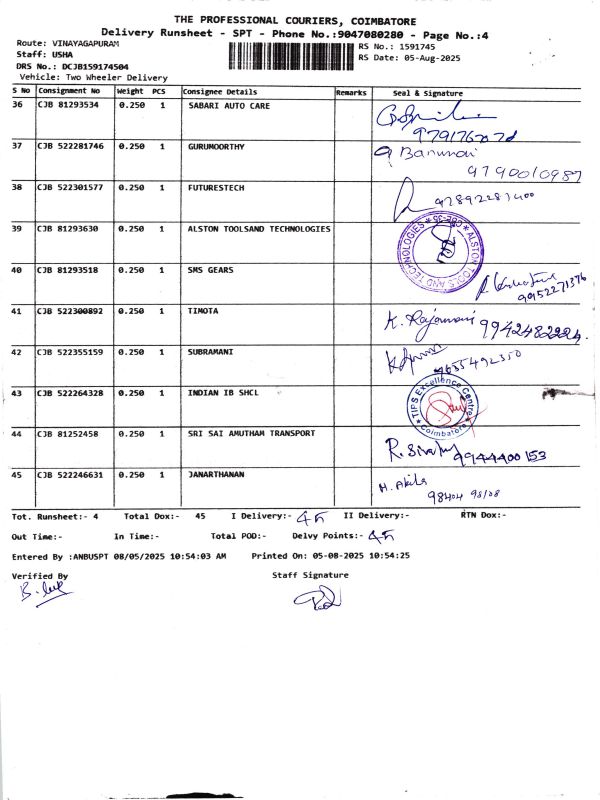 THE PROFESSIONAL COURIERS, COIMBATORE
Delivery Runsheet - SPT - Phone No.:9047080280 - Page No.:4
Route: VINAYAGAPURAM
Staff: USHA
DRS No.: DCJB159174504
Vehicle: Two Wheeler Delivery
RS No.: 1591745
RS Date: 05-Aug-2025
S No Consignment No Weight PCS Consignee Details Remarks Seal & Signature
36 CJB 81293534 0.250 1 SABARI AUTO CARE
37 CJB 522281746 0.250 1 GURUMOORTHY
9790010987
38 CJB 522301577 0.250 1 FUTURESTECH
39 CJB 81293630 0.250 1 ALSTON TOOLSAND TECHNOLOGIES
ALSTON TOOLS AND TECHNOLOGIES * CBE-35 *
40 CJB 81293518 0.250 1 SMS GEARS
9952271376
41 CJB 522300892 0.250 1 TIMOTA K. Rajamani
42 CJB 522355159 0.250 1 SUBRAMANI
43 CJB 522264328 0.250 1 INDIAN IB SHCL
TIPS Excellence Centre * Coimbatore *
44 CJB 81252458 0.250 1 SRI SAI AMUTHAM TRANSPORT
9944400153
45 CJB 522246631 0.250 1 JANARTHANAN M. Akila
98404 98108
Tot. Runsheet:- 4 Total Dox:- 45 I Delivery:- 45 II Delivery:- RTN Dox:-
Out Time:- In Time:- Total POD:- Delvy Points:- 45
Entered By :ANBUSPT 08/05/2025 10:54:03 AM Printed On: 05-08-2025 10:54:25
Verified By Staff Signature